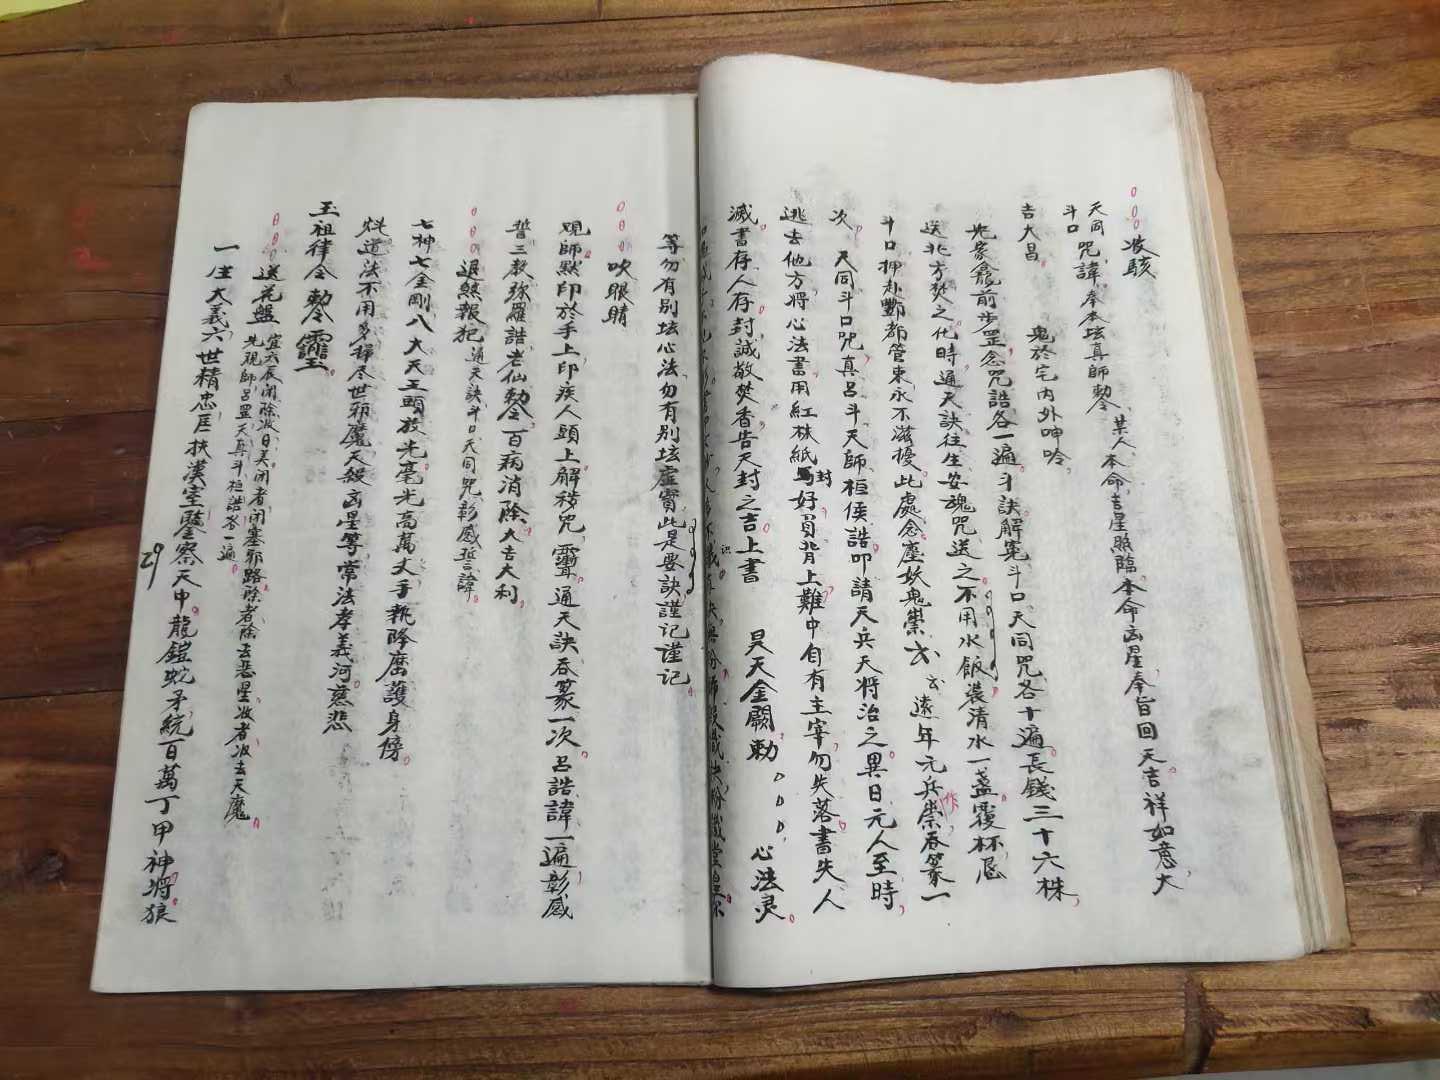 收駭
天同斗口咒諱奉本坛真師勅令某人本命吉星照臨本命凶星奉旨回天吉祥如意大
吉大昌 鬼於宅內外呻吟
龕前步罡念咒誥各一遍斗訣解冤斗口天同咒各十遍長錢三十六株
送北方焚之化時通天訣往生安魂咒送之不用水飯裝清水一盞覆杯忌
斗口押赴酆都管束永不滋擾此處念塵妖鬼祟去 遠年元兵作祟吞篆一
次 天同斗口咒真呂斗天師桓侯誥叩請天兵天將治之異日元人至時
逃去他方將心法書用紅袜紙写封好肩背上難中自有主宰勿失落書失人
滅書存人存封誠敬焚香告天封之吉上書 昊天金闕勅 心法灵
等勿有别坛心法勿有别坛虛實此是要訣謹记謹记
吹眼睛
視師默印於手上印疾人頭上解穢咒靈通天訣吞篆一次呂誥諱一遍彰感
誓三教弥羅誥老仙勅令百病消除大吉大利
退煞報犯 通天訣斗口天同咒彰感誓諱
七神七金剛八大天王頭放光毫光高萬丈手執降魔護身傍
道法不用多掃尽世邪魔天殺凶星等常法孝義河慈悲
玉祖律令勅令
送花盤 宜六辰闭除收日美闭者闭塞邪路除者除去恶星收者收去天魔
先視師呂罡天真斗桓誥各一遍
一生大義六世精忠匡扶漢室鑒察天中龍鎧蛇矛統百萬丁甲神將狼
29